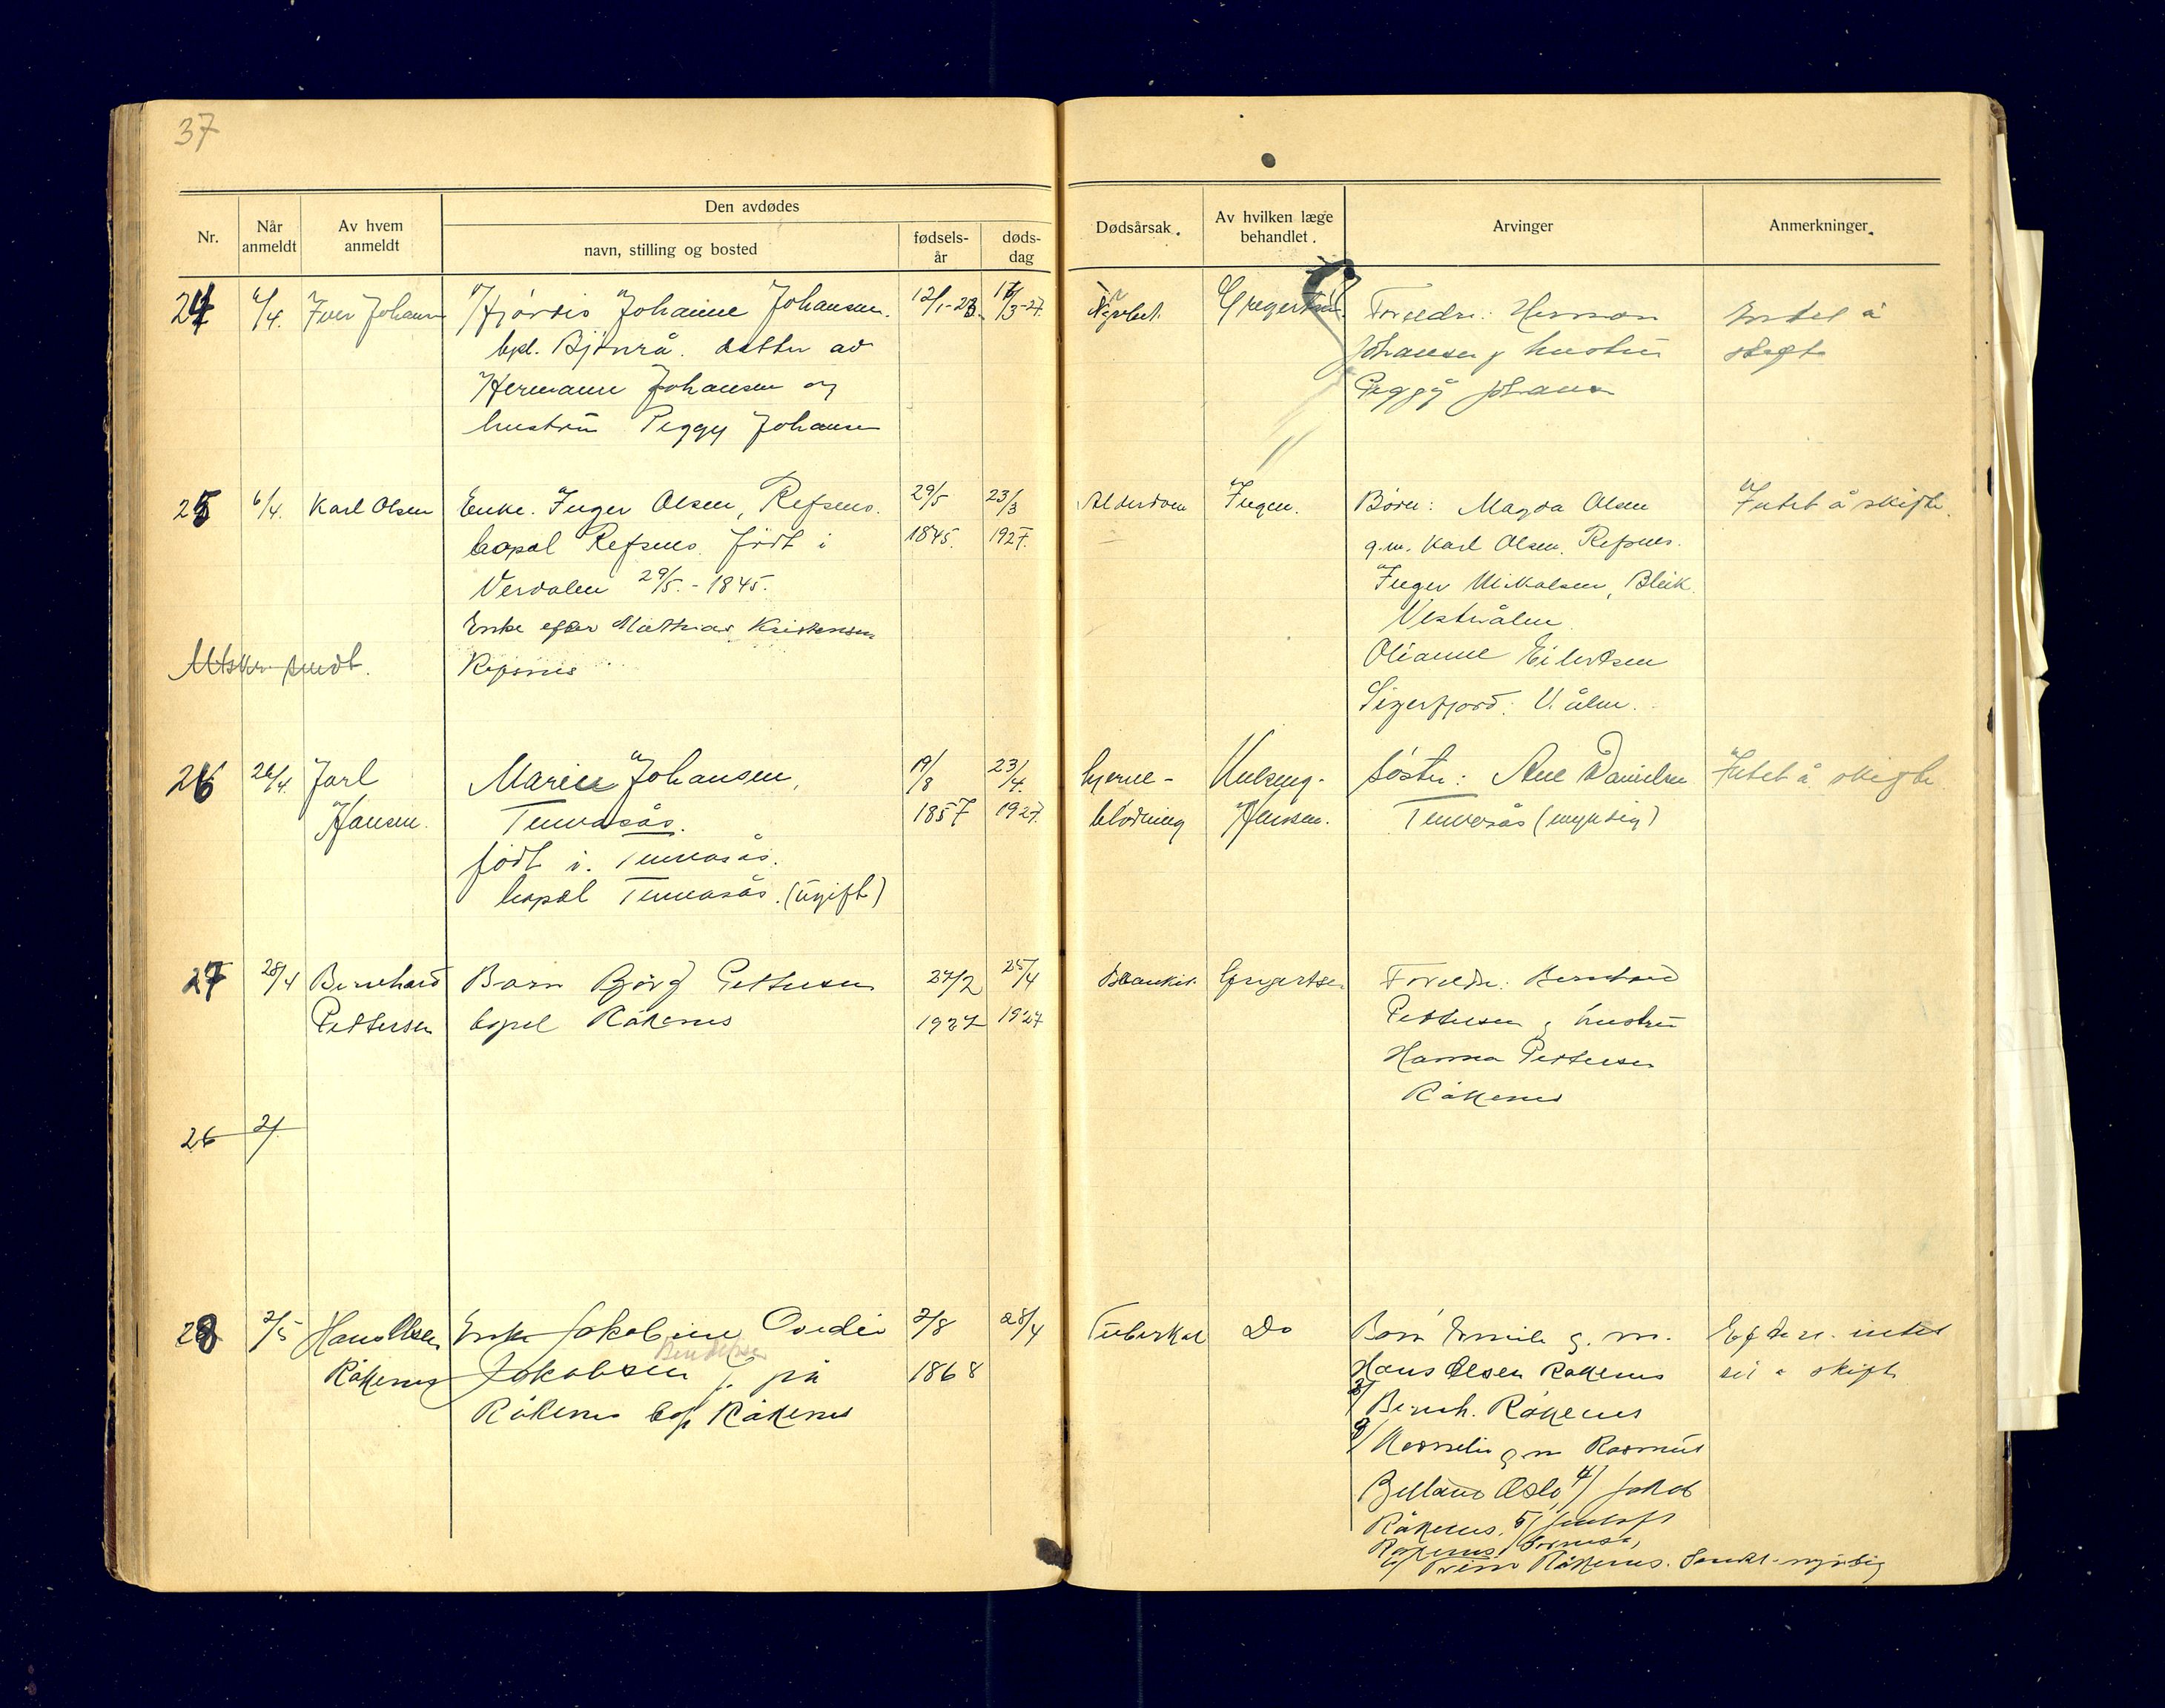 37
Nr.
Når anmeldt
Av hvem anmeldt
Den avdødes
navn, stilling og bosted
fødsels-år
døds-dag
Dødsårsak.
Av hvilken læge behandlet.
Arvinger
Anmerkninger.
24 6/4. Iver Johansen Hjördis Johanne Johansen. 12/1-23. /3-27. Gregertsen Foreldre: Herman Intet å
bpl. Bjönrå. datter av Johansen & hustru skifte
Hermann Johansen og Peggy Johansen
hustru Peggy Johansen
25 6/4. Karl Olsen Enke. Inger Olsen, Refsnes. 29/5 23/3 Alderdom Ingen. Börn: Magda Olsen Intet å skifte.
bopæl Refsnes. född i 1845. 1927. g.m. Karl Olsen, Refsnes.
Verdalen 29/5.-1845. Inger Mikalsen, Bleik.
Enke efter Mathias Kristensen Vesterålen.
Utskr. sendt. Refsnes Olianne Eilertsen
Sigerfjord. V.ålen.
26 26/4. Jarl Marie Johansen, 19/8 23/4. hjerne- Söster: Ane Danielsen Intet å skifte.
Hansen. Tennvasås. 1857 1927. blödning Hansen. Tennvasås (myndig)
född i. Tennvasås.
bopæl Tennvasås. (ugift)
27 28/4 Bernhard Barn Björg Pettersen 27/2 25/4 Bronkit. Gregertsen Foreldre: Bernhard
Pettersen bopæl Råkenes 1927 1927 Pettersen & hustru
Hanna Pettersen
Råkenes
26 2/
28 2/5 Hans Olsen Enke Jakobine Ovedie 2/8 28/4 Tuberkul Do Barn Emilie g. m.
Bendiksen
Råkenes Jakobsen f. på 1868 Hans Olsen Råkenes skifte
Råkenes bop. Råkenes 2/ Bernh. Råkenes
3/ Kornelie g m Rasmus
Oslo 4/ Jakob
Råkenes. 5/
Råkenes,
6/ Råkenes. Samtl. myndig